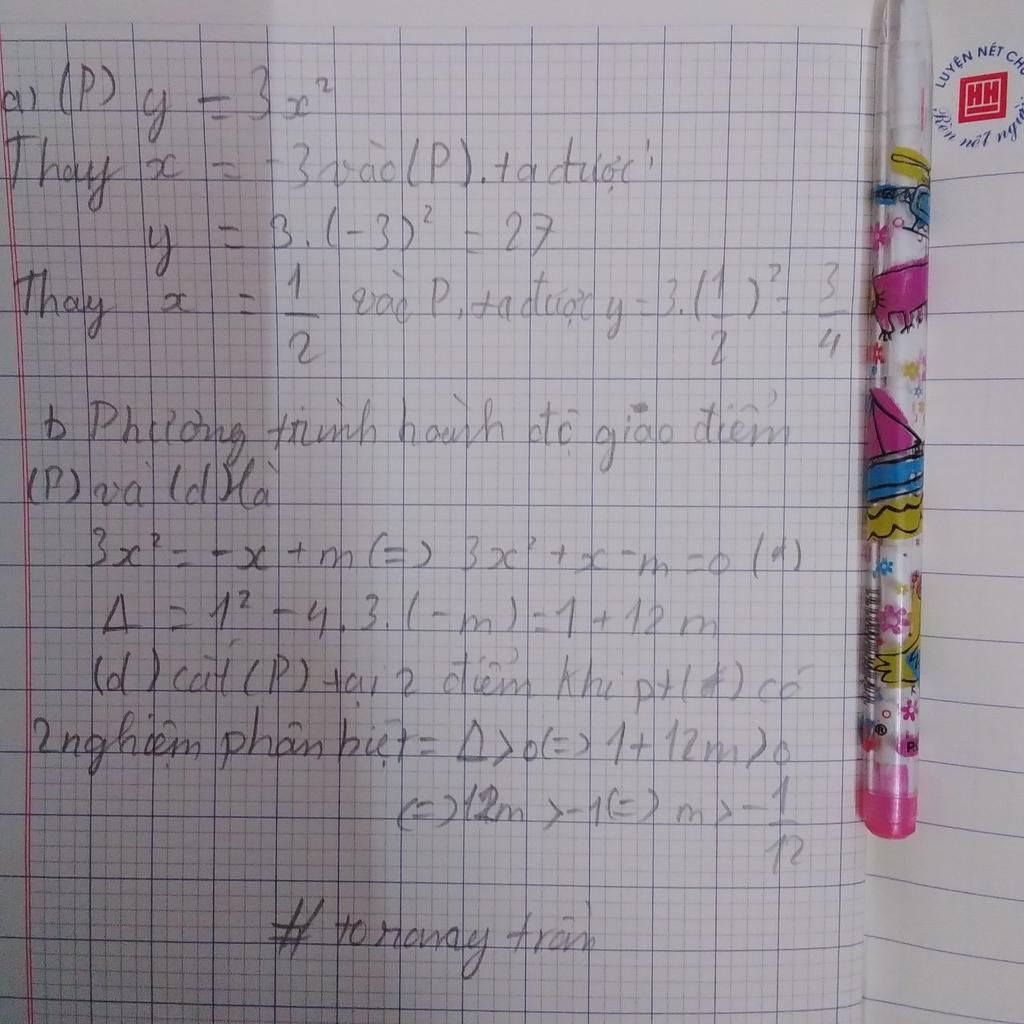 a) (P) y = 3x²
Thay x = -3 vào (P), ta được:
y = 3.(-3)² = 27
Thay x = 1/2 vào P, ta được y = 3.(1/2)² = 3/4
b Phương trình hoành độ giao điểm
(P) và (d) là
3x² = -x + m (=) 3x² + x - m = 0 (1)
Δ = 1² - 4.3.(-m) = 1 + 12m
(d) cắt (P) tại 2 điểm khi pt (1) có
2 nghiệm phân biệt = Δ > 0 (=) 1 + 12m > 0
(=) 12m > -1 (=) m > -1/12
# trần
LUYỆN NÉT CHỮ
HH
Rèn nết người